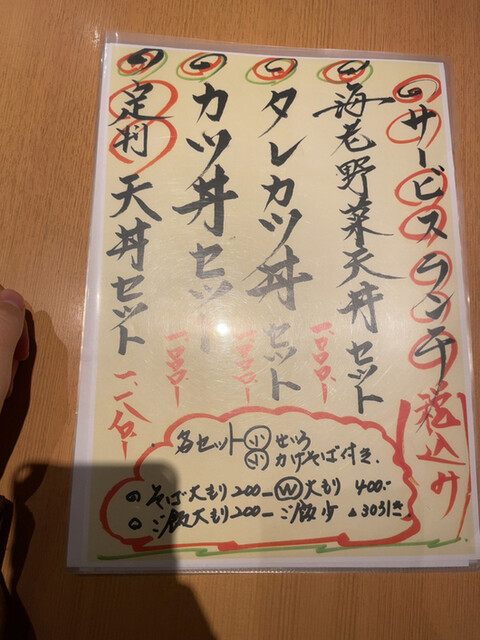 サービスランチ 税込み
海老野菜天丼セット 一、〇〇〇ー
タレカツ丼セット
カツ丼セット 一、〇〇〇ー
定刊 天丼セット
各セット 小 せいろ
小 かけそば付き.
そば大もり200ー W大もり 400.-
ご飯大もり200ー ご飯少 ▲30引き.